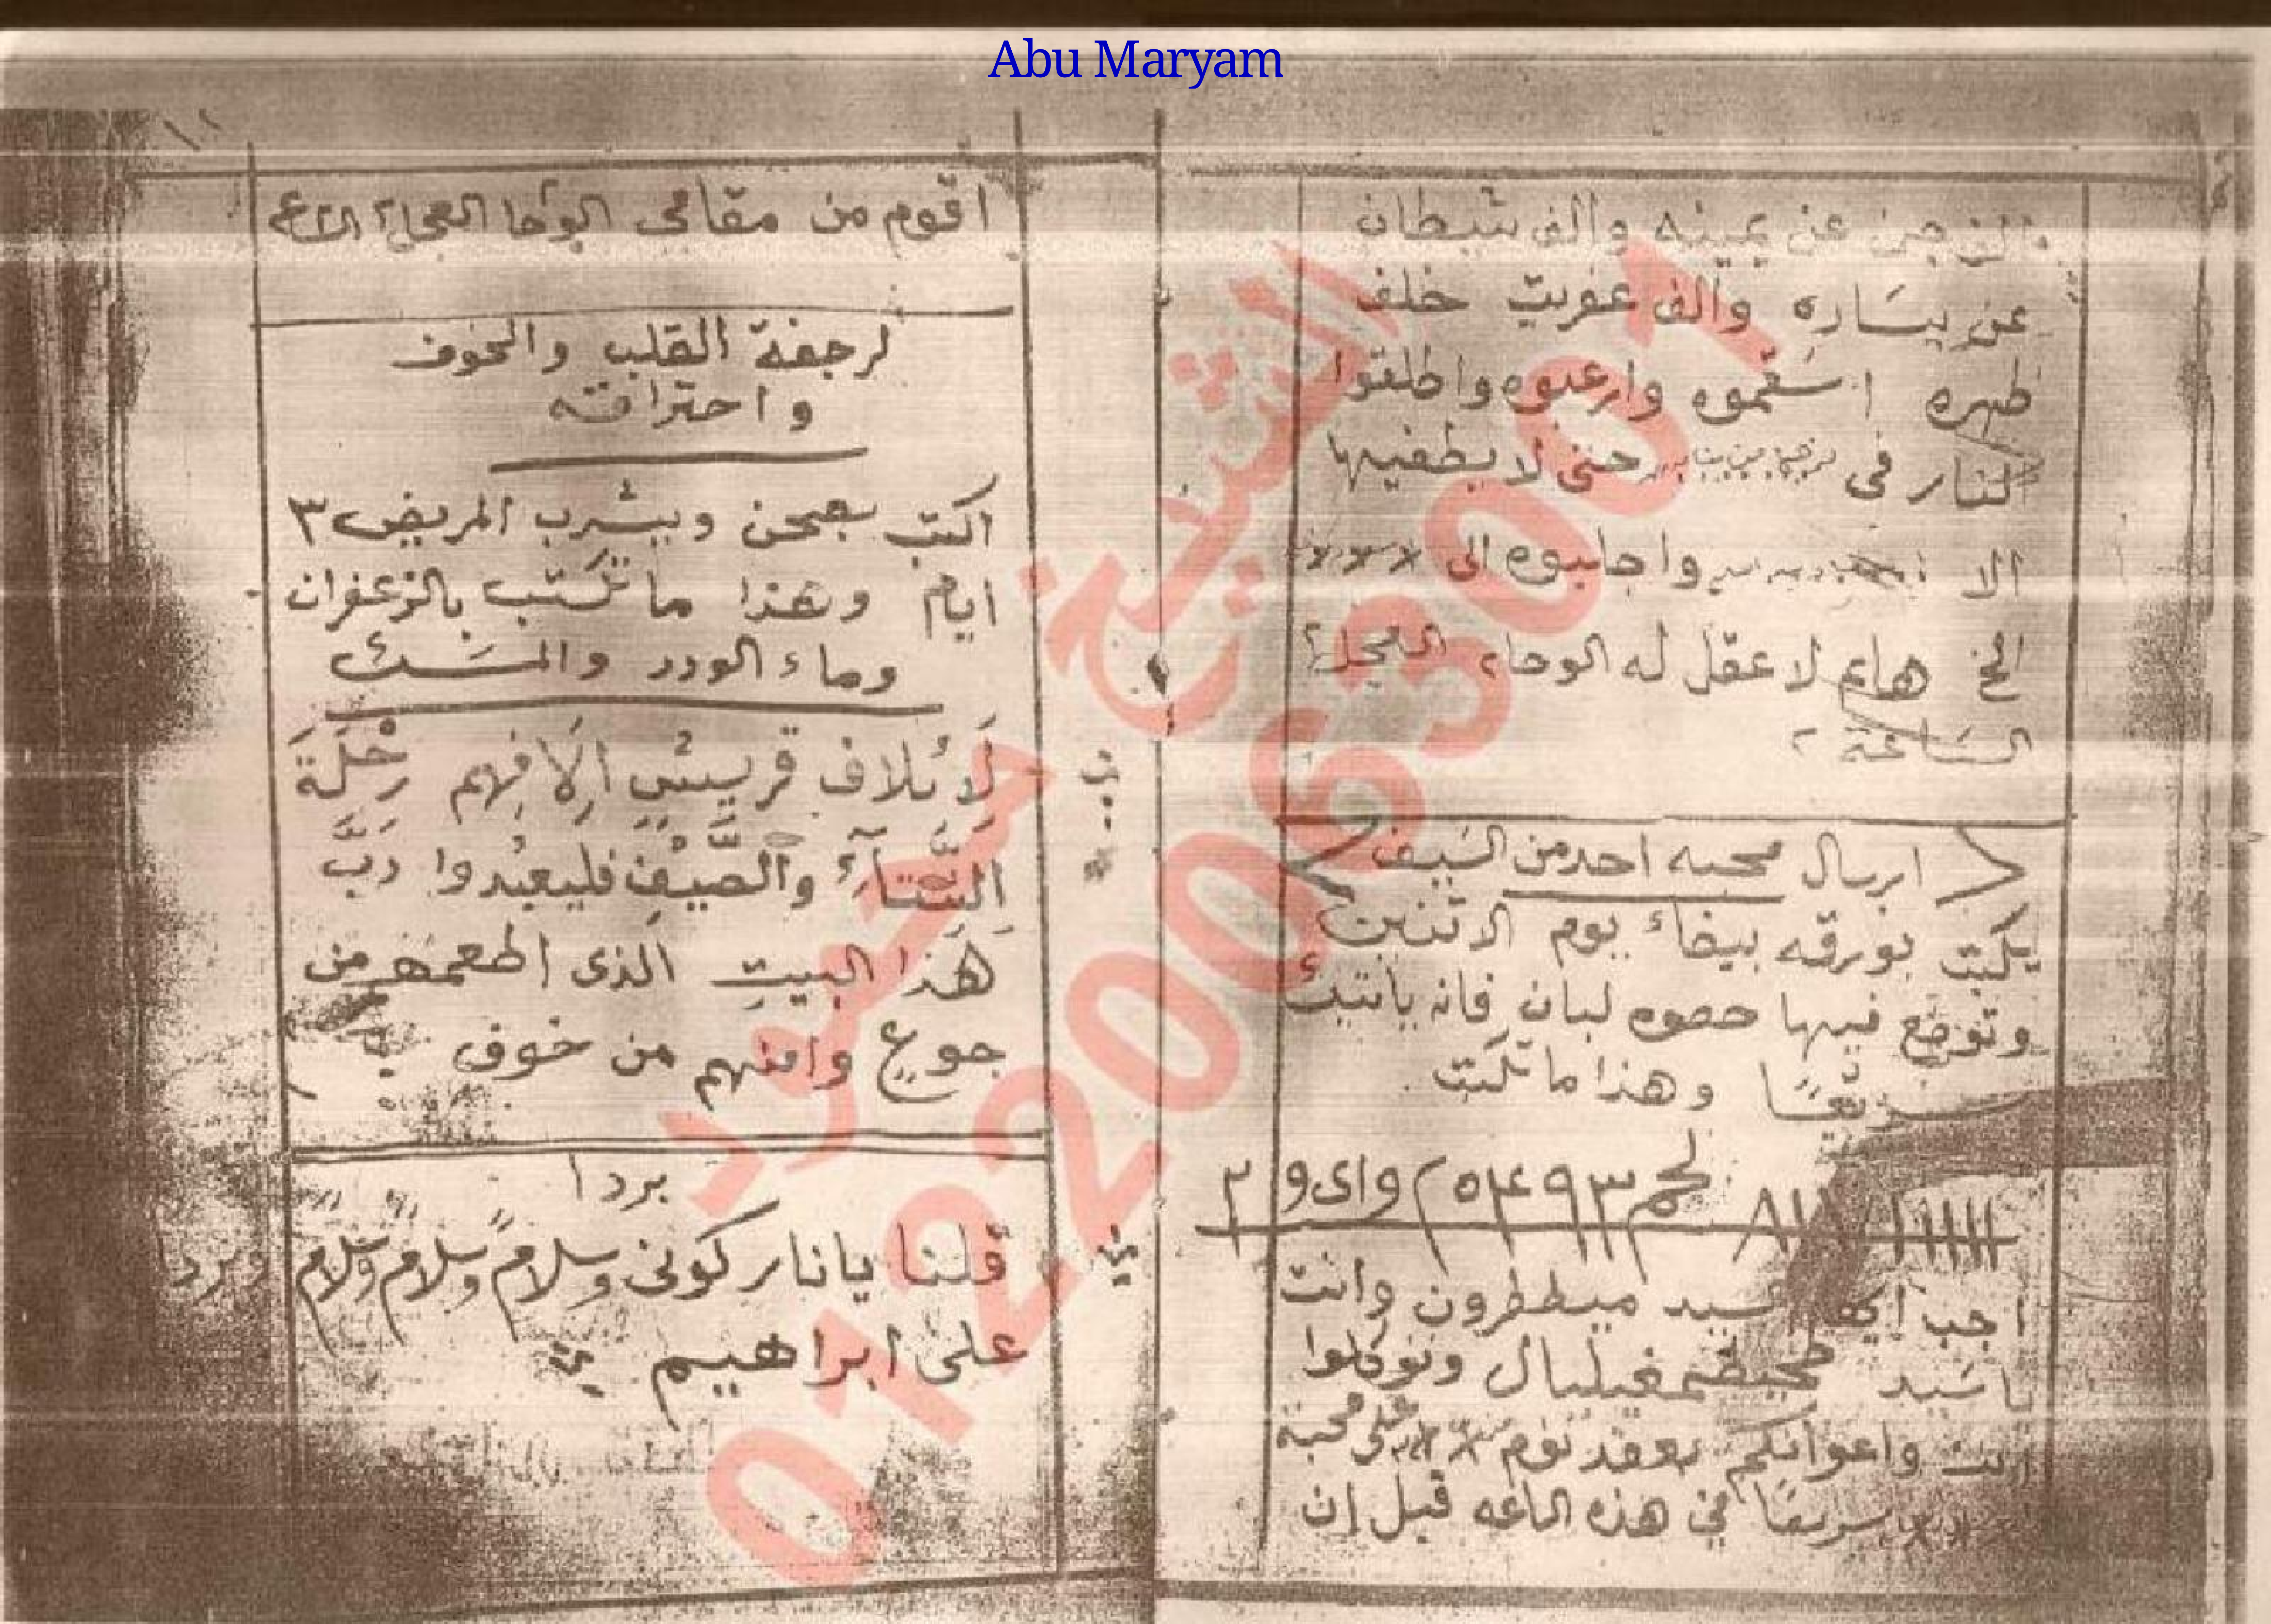 Abu Maryam
والف جن عن يمينه والف شيطان
عن يساره والف عفريت خلف
ظهره اسقموه وارعبوه واطلقوا
النار في حتى لا يطفيها
الا واجلبوه الى
هايم لا عقل له الوحا٢ العجل٢
الساعة ٢
ارسال محبه احد من السيف
يكتب بورقه بيضاء يوم الاثنين
وتوضع فيها حصوه لبان فانه ياتيك
سريعًا وهذا ما تكتب
اجب سيد ميططرون وانت
يا سيد وتوكلوا
انت واعوانكم بعقد نوم على محبة
سريعًا في هذه الساعه قبل ان
١١
اقوم من مقامى الوحا العجل٢
لرجفة القلب والخوف
واحتراقه
اكتب بصحن ويشرب المريض ٣
ايام وهذا ما تكتب بالزعفران
وماء الورد والمسك
لِائلاف قريشٍ اِلافِهِم رحْلَةَ
الشَّتآء والصَّيْفِ فليعبُدوا رَبَّ
هَذا البيتِ الذى اطعمهم من
جوعٍ وامنهم من خوف
بردا
قلنا يا نار كونى وسلامٌ وسلامٌ وسلامٌ وبردا
على ابراهيم
الشيخ محمود
01220063001